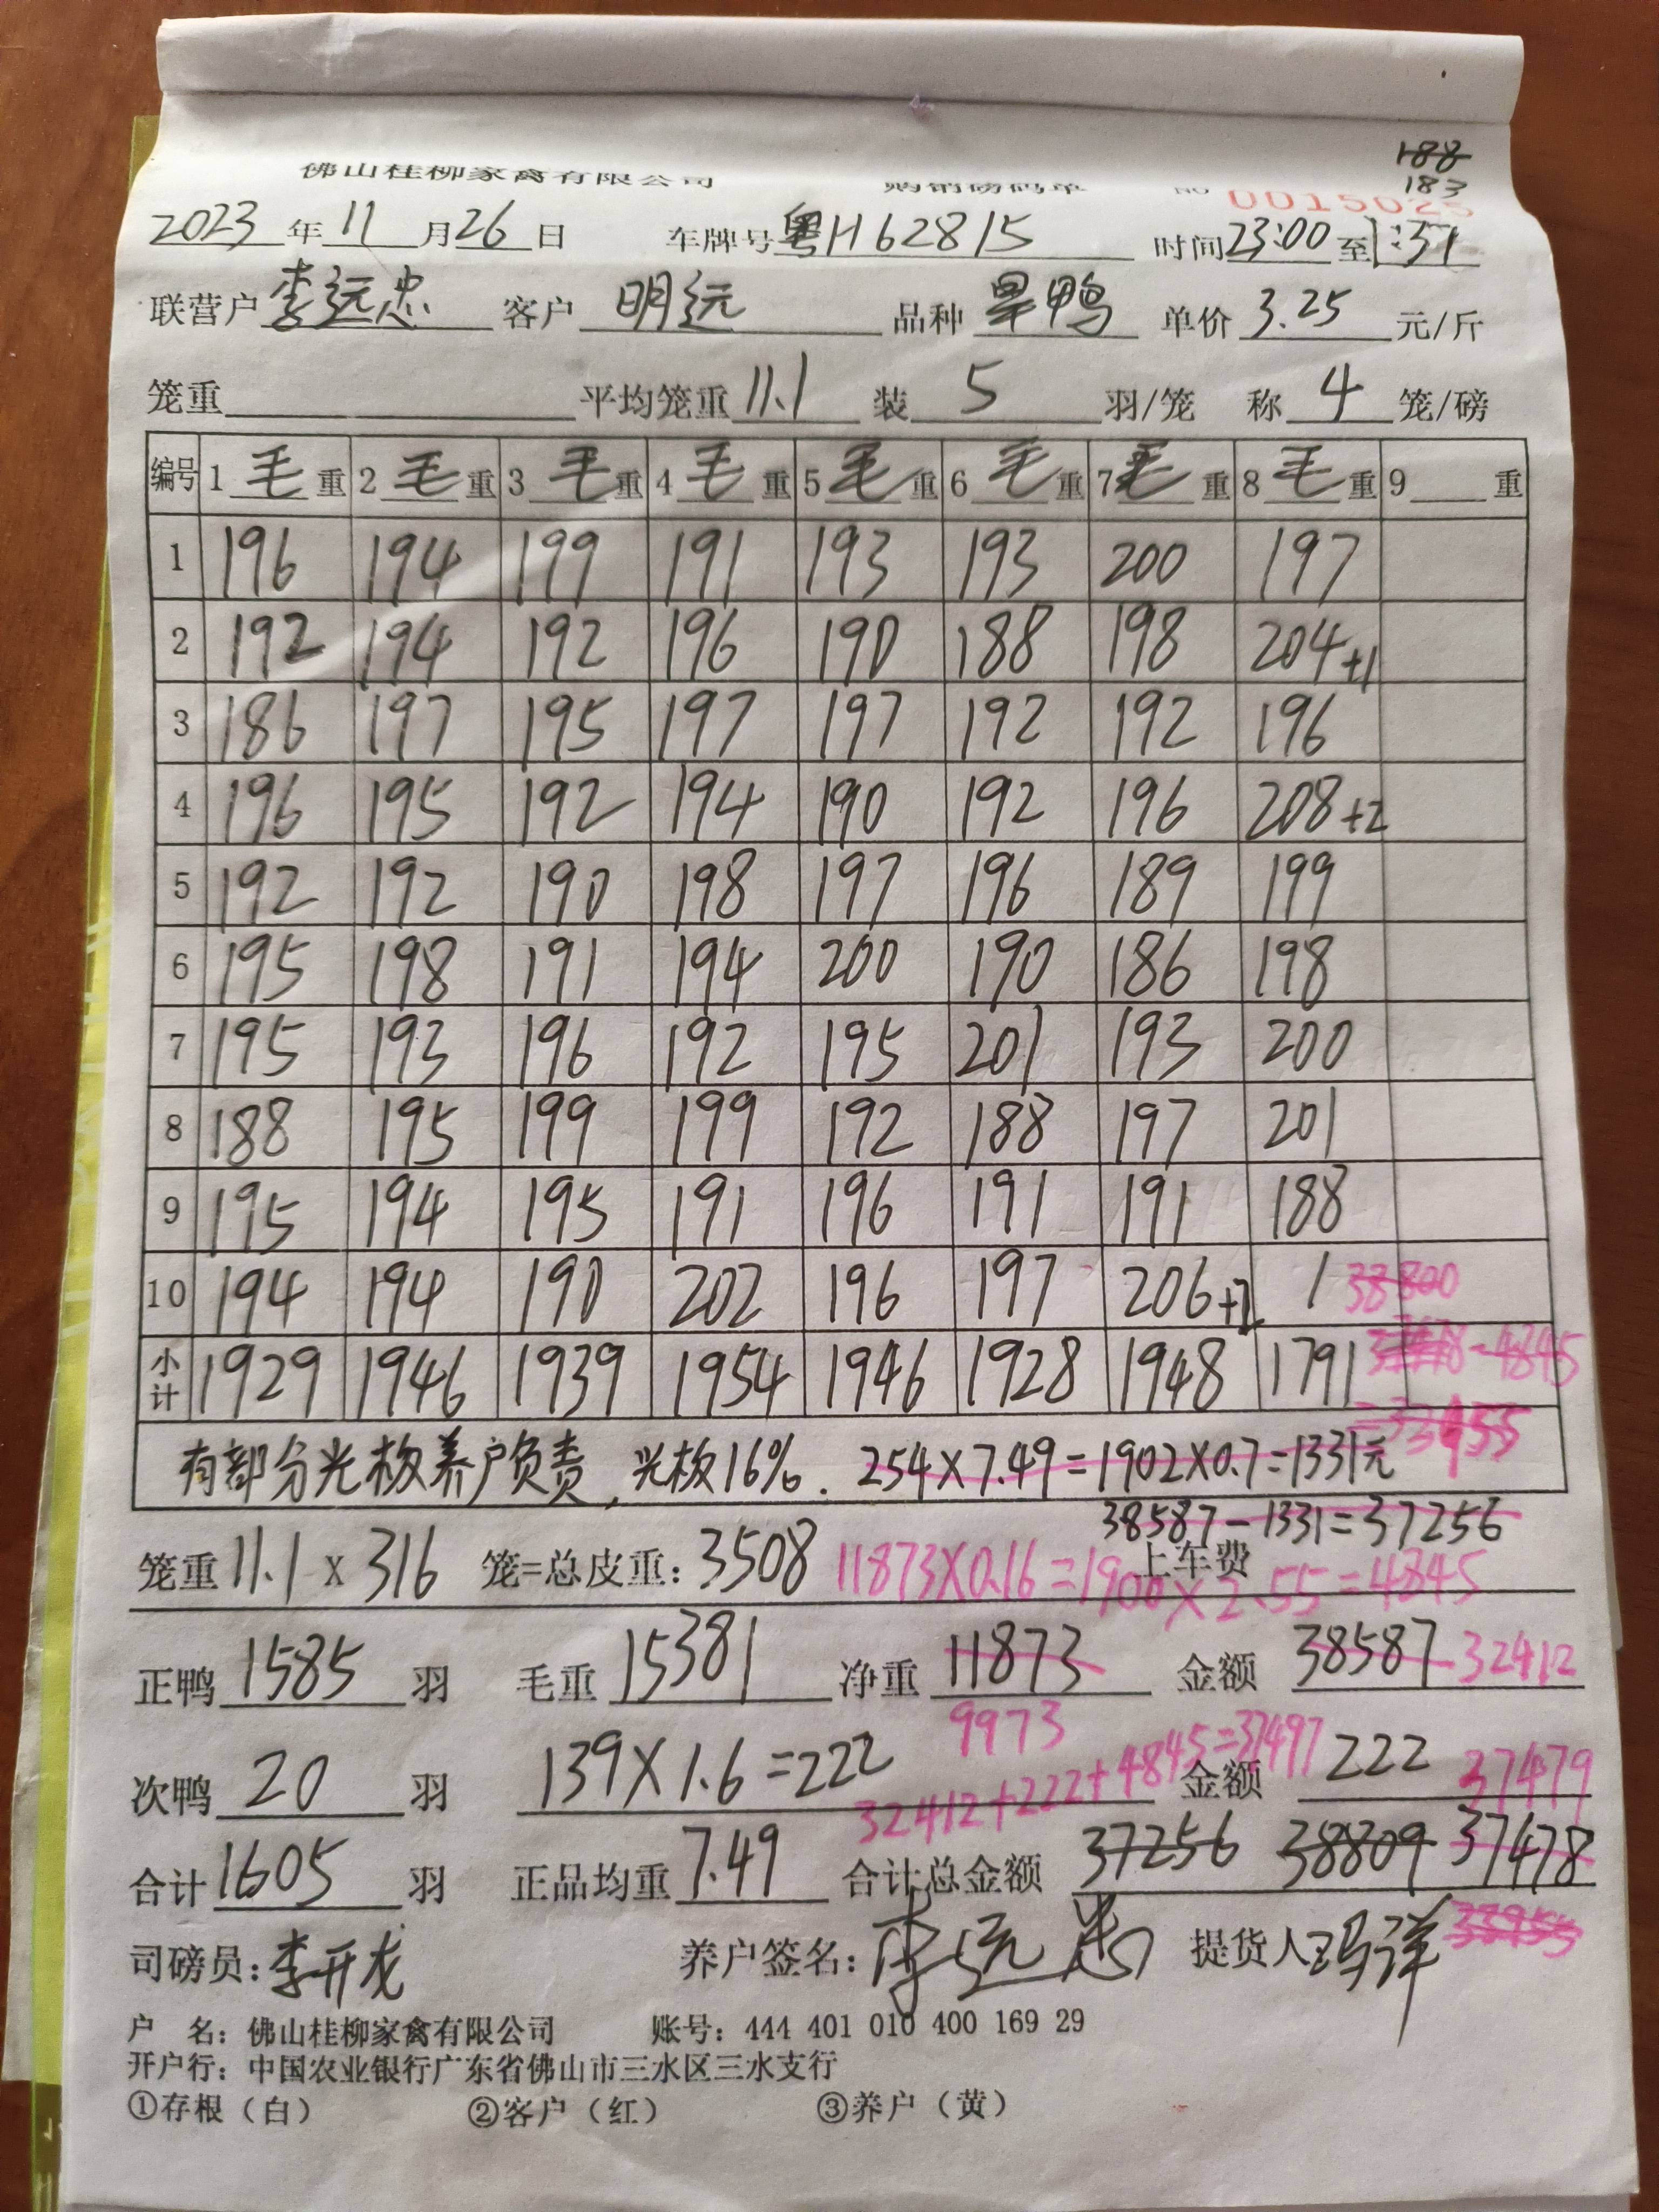 188
183
佛山桂柳家禽有限公司 购销磅码单 No 0015025
2023年11月26日 车牌号粤H62815 时间23:00至1:31
联营户李远忠 客户明远 品种旱鸭 单价3.25元/斤
笼重 平均笼重11.1 装5羽/笼 称4笼/磅
编号 1毛重 2毛重 3毛重 4毛重 5毛重 6毛重 7毛重 8毛重 9重
1 196 194 199 191 193 193 200 197
2 192 194 192 196 190 188 198 204+1
3 186 197 195 197 197 192 192 196
4 196 195 192 194 190 192 196 208+2
5 192 192 190 198 197 196 189 199
6 195 198 191 194 200 190 186 198
7 195 193 196 192 195 201 193 200
8 188 195 199 199 192 188 197 201
9 195 194 195 191 196 191 191 188
10 194 194 190 202 196 197 206+2 1 38800
小计 1929 1946 1939 1954 1946 1928 1948 1791 -4845
=33955
有部分光板养户负责,光板16%. 254×7.49=1902×0.7=1331元
38587-1331=37256
笼重11.1×316笼=总皮重:3508 上车费
11873×0.16=1900×2.55=4845
正鸭1585羽 毛重15381 净重11873 金额38587 32412
9973
次鸭20羽 139×1.6=222 金额222 37479
32412+222+4845=37497
合计1605羽 正品均重7.49 合计总金额 37256 38809 37478
33955
司磅员:李开龙 养户签名:李远忠 提货人:冯洋
户 名:佛山桂柳家禽有限公司 账号:444 401 010 400 169 29
开户行:中国农业银行广东省佛山市三水区三水支行
①存根(白) ②客户(红) ③养户(黄)